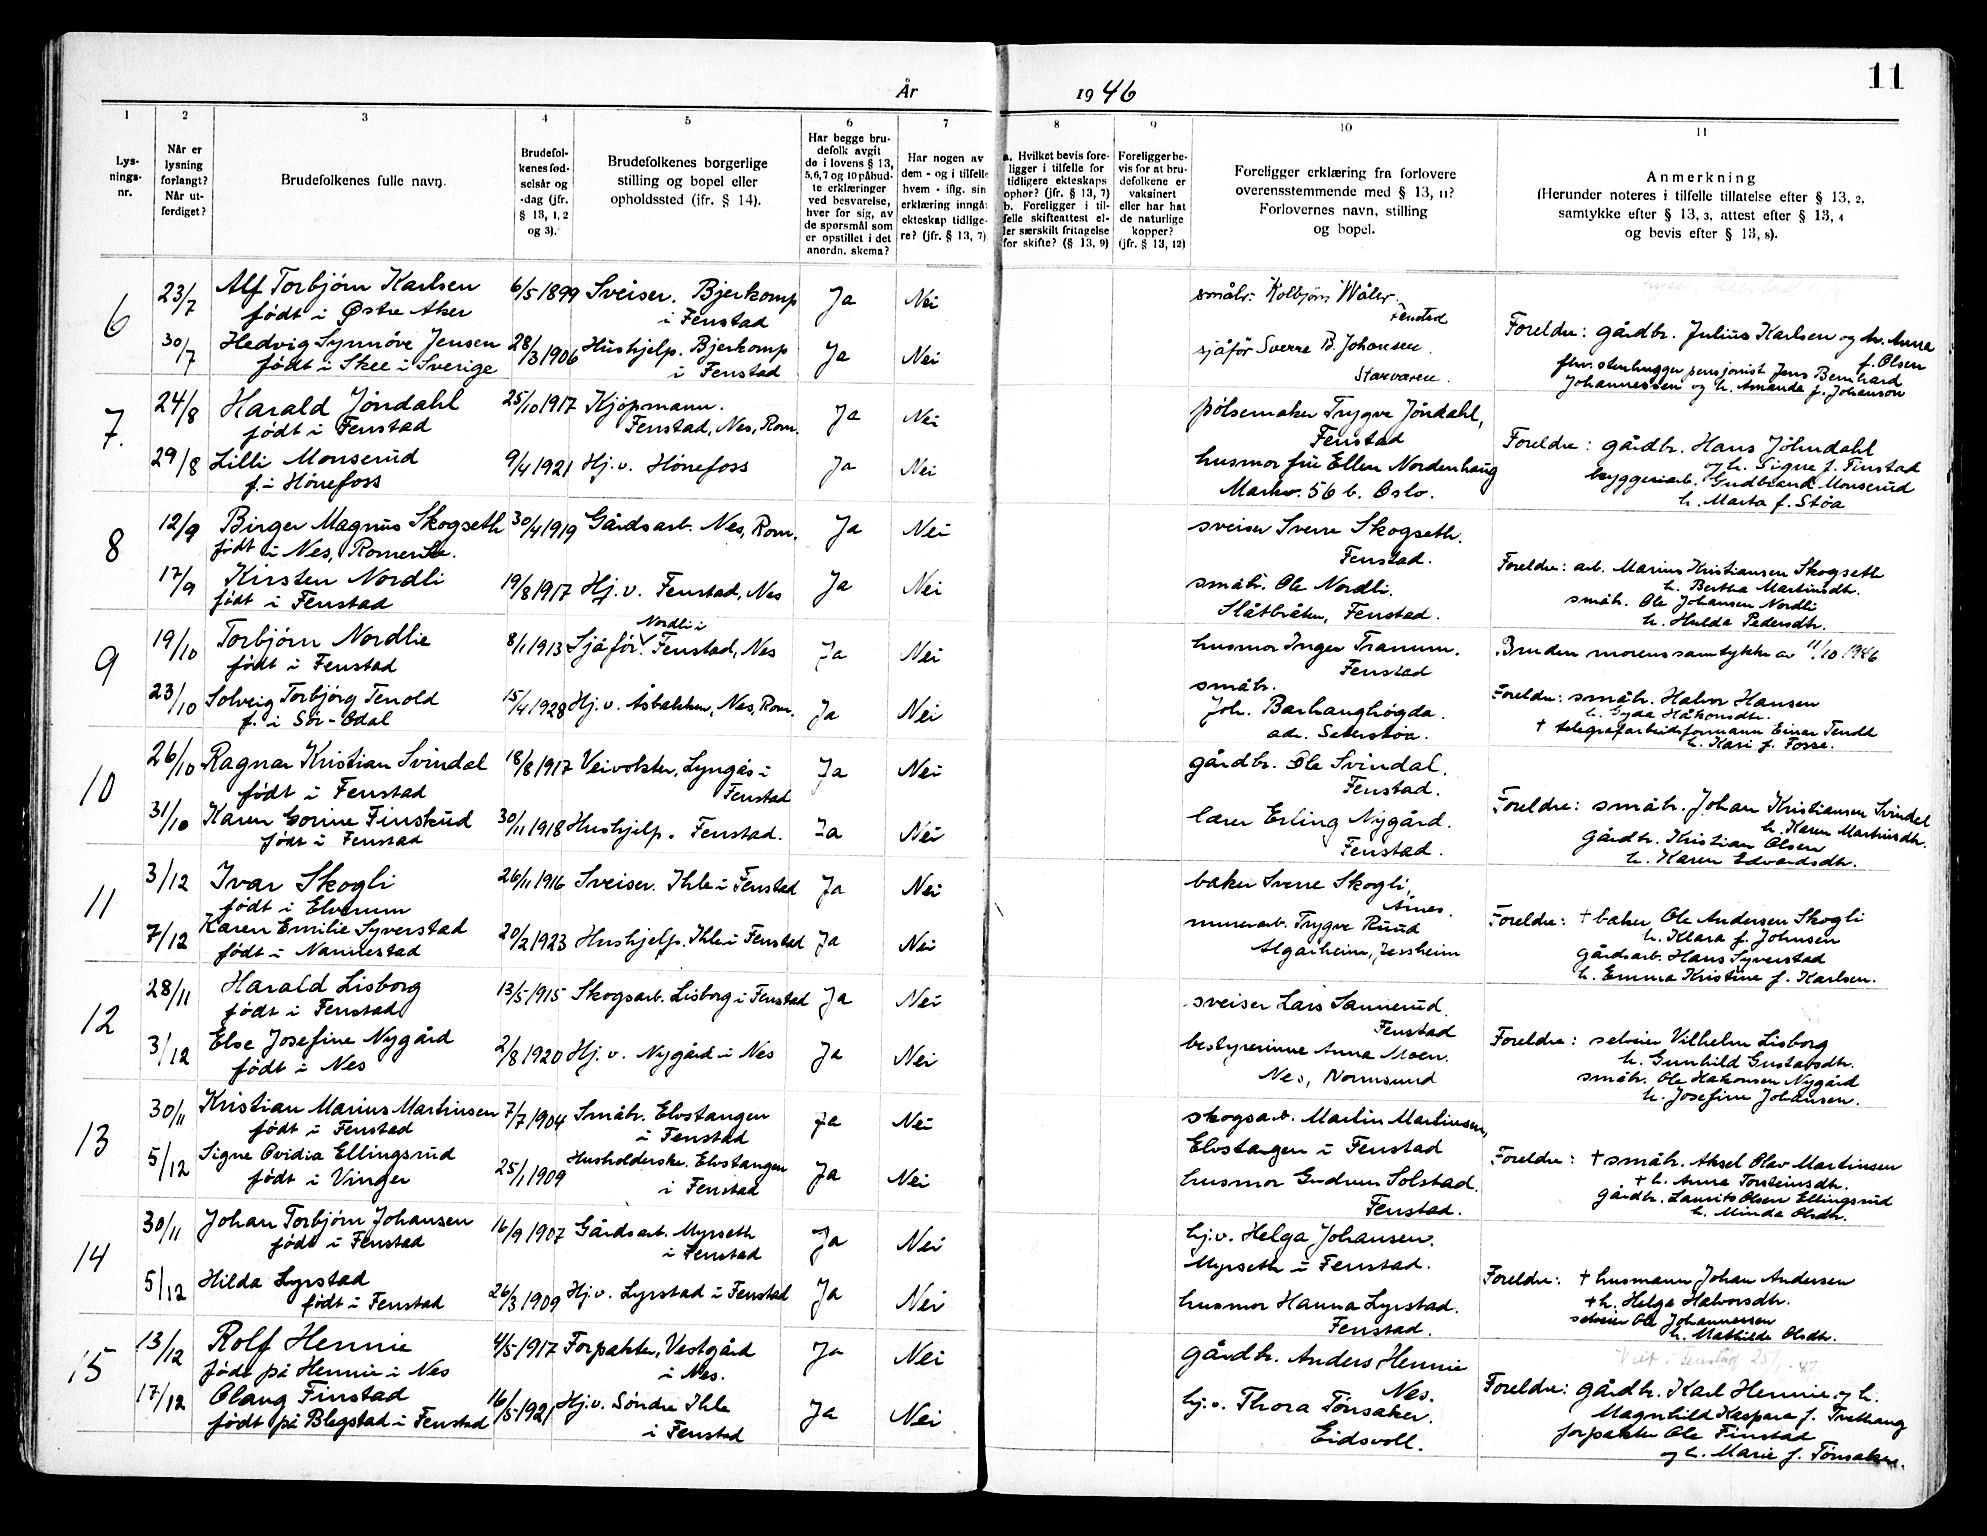 11
År 1946
1 2 3 4 5 6 7 8 9 10 11
Lys-
nings-
nr.
Når er
lysning
forlangt?
Når ut-
ferdiget?
Brudefolkenes fulle navn.
Brudefol-
kenes fød-
selsår og
-dag (jfr.
§ 13, 1, 2
og 3).
Brudefolkenes borgerlige
stilling og bopel eller
opholdssted (jfr. § 14).
Har begge bru-
defolk avgit
de i lovens § 13,
5,6,7 og 10 påbud-
te erklæringer
ved besvarelse,
hver for sig, av
de spørsmål som
er opstillet i det
anordn. skema?
Har nogen av
dem - og i tilfelle
hvem - iflg. sin
erklæring inngåt
ekteskap tidlige-
re? (jfr. § 13, 7)
a. Hvilket bevis fore-
ligger i tilfelle for
tidligere ekteskaps
ophør? (jfr. § 13, 7)
b. Foreligger i til-
felle skifteattest el-
ler særskilt fritagelse
for skifte? (§ 13, 9)
Foreligger be-
vis for at bru-
defolkene er
vaksinert
eller har hat
de naturlige
kopper?
(jfr. § 13, 12)
Foreligger erklæring fra forlovere
overensstemmende med § 13, 11?
Forlovernes navn, stilling
og bopel.
Anmerkning
(Herunder noteres i tilfelle tillatelse efter § 13, 2,
samtykke efter § 13, 3, attest efter § 13, 4
og bevis efter § 13, 8).
6
23/7 Alf Torbjørn Karlsen 6/5 1899 Sveiser. Bjerkomp Ja Nei
født i Østre Aker i Fenstad
30/7 Hedvig Synnøve Jensen 28/3 1906 Hushjelp. Bjerkomp Ja Nei
født i Skee i Sverige i Fenstad
småbr. Kolbjørn Wåler.
Fenstad
sjåfør Sverre B. Johansen.
Foreldre: gårdbr. Julius Karlsen og h. Anna
f. Olsen
fhv. stenhugger pensjonist Jens Bernhard
Johannessen og h. Amanda f. Johanson
7.
24/8 Harald Jöndahl 25/10 1917 Kjøpmann. Ja Nei
født i Fenstad Fenstad, Nes, Rom.
29/8 Lilli Monserud 9/4 1921 Hj. v. Hönefoss Ja Nei
f. i Hönefoss
pølsemaker Trygve Jöndahl,
Fenstad
husmor frue Ellen Nordenhaug
Markv. 56 b. Oslo.
Foreldre: gårdbr. Hans Jöhndahl
og h. Signe f. Finstad
byggeriarb. Gudbrand Monserud
h. Marta f. Støa
8
12/9 Birger Magnus Skogseth 30/4 1919 Gårdsarb. Nes, Rom. Ja Nei
født i Nes, Romerike.
17/9 Kirsten Nordli 19/8 1917 Hj. v. Fenstad, Nes Ja Nei
født i Fenstad
sveiser Sverre Skogseth.
Fenstad.
småbr. Ole Nordli.
Slåtbråten, Fenstad.
Foreldre: arb. Marius Kristiansen Skogseth
h. Bertha Martinsdtr.
småbr. Ole Johansen Nordli
h. Hulda Pedersdtr.
9
19/10 Torbjörn Nordlie 8/1 1913 Sjåför. Nordli i Fenstad, Nes Ja Nei
født i Fenstad
23/10 Solveig Torbjörg Tenold 15/4 1928 Hj. v. Åsbakken, Nes, Rom. Ja Nei
f. i Sör-Odal
husmor Inger Tranum.
Fenstad
småbr.
Joh. Barhaughögda.
adr. Seterstøa.
Bruden morens samtykke av 11/10 1946
Foreldre: småbr. Halvor Hansen
h. Gyda Håkonsdtr.
† telegrafarbeidsformann Einar Tenold
h. Kari f. Fosse.
10
26/10 Ragnar Kristian Svindal 18/8 1917 Veivokter, Lyngås i Ja Nei
født i Fenstad Fenstad
31/10 Karen Gorine Finskud 30/11 1918 Hushjelp. Fenstad. Ja Nei
født i Fenstad
gårdbr. Ole Svindal.
Fenstad.
lærer Erling Nygård.
Fenstad.
Foreldre: småbr. Johan Kristiansen Svindal
h. Karen Martinsdtr.
gårdbr. Kristian Olsen
h. Karen Edvardsdtr.
11
3/12 Ivar Skogli 26/11 1916 Sveiser. Ihle i Fenstad Ja Nei
født i Elverum
7/12 Karen Emilie Syverstad 20/2 1923 Hushjelp. Ihle i Fenstad Ja Nei
født i Nannestad
baker Sverre Skogli,
Årnes.
murerarb. Trygve Ruud
Algarheim, Jessheim
Foreldre: † baker Ole Andersen Skogli
h. Klara f. Johnsen
gårdsarb. Hans Syverstad
h. Emma Kristine f. Karlsen.
12
28/11 Harald Lisborg 13/5 1915 Skogsarb. Lisborg i Fenstad Ja Nei
født i Fenstad
3/12 Else Josefine Nygård 2/8 1920 Hj. v. Nygård i Nes Ja Nei
født i Nes
sveiser Lars Sannerud.
Fenstad
bestyrerinne Anna Moen.
Nes, Normsund
Foreldre: selveier Vilhelm Lisborg
h. Gunhild Gustavsdtr.
småbr. Ole Hakonsen Nygård
h. Josefine Johansen.
13
30/11 Kristian Marius Martinsen 7/7 1904 Småbr. Elvstangen Ja Nei
født i Fenstad i Fenstad
5/12 Signe Ovidia Ellingsrud 25/1 1909 Husholderske. Elvstangen Ja Nei
født i Vinger i Fenstad
skogsarb. Martin Martinsen,
Elvstangen i Fenstad
husmor Gudrun Solstad.
Fenstad.
Foreldre: † småbr. Aksel Olav Martinsen
† h. Anna Torsteinsdtr.
gårdbr. Laurits Olsen Ellingsrud
h. Minda Olsdtr.
14
30/11 Johan Torbjörn Johansen 16/9 1907 Gårdsarb. Myrseth Ja Nei
født i Fenstad i Fenstad
5/12 Hilda Lyrstad 26/3 1909 Hj. v. Lyrstad i Fenstad Ja Nei
født i Fenstad
hj. v. Helga Johansen.
Myrseth i Fenstad.
husmor Hanna Lyrstad.
Fenstad.
Foreldre: † husmann Johan Andersen
† h. Helga Halvorsdtr.
selveier Ole Johannessen
h. Mathilde Olsdtr.
15
13/12 Rolf Hennie 4/5 1917 Forpakter, Vestgård Ja Nei
født på Hennie i Nes i Nes.
17/12 Olaug Finstad 16/5 1921 Hj. v. Søndre Ihle Ja Nei
født på Blegstad i Fenstad i Fenstad
gårdbr. Anders Hennie
Nes.
hj. v. Thora Tönsaker.
Eidsvoll.
Viet i Fenstad 25/1 - 47
Foreldre: gårdbr. Karl Hennie og h.
Magnhild Kaspara f. Trethaug
forpakter Ole Finstad
og h. Marie f. Tönsaker.